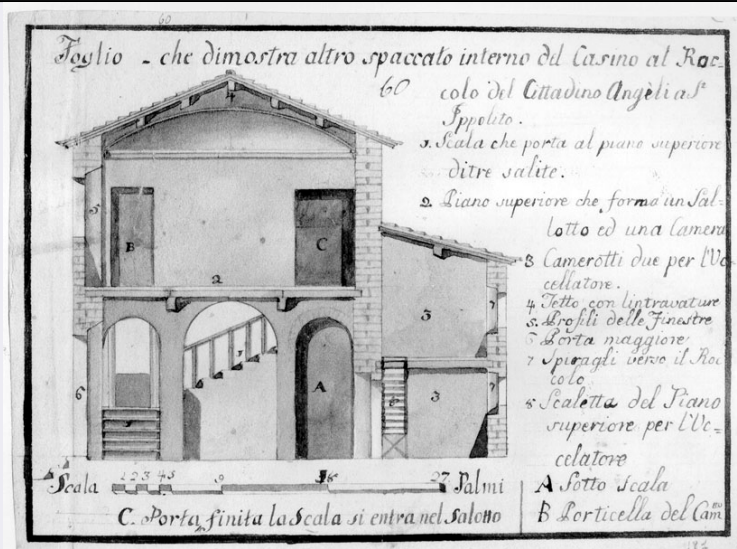 Foglio - che dimostra altro spaccato interno del Casino al Roc=
colo del Cittadino Angèli a St
Ippolito.
60
1. Scala che porta al piano superiore
di tre salite.
2. Piano superiore che forma un Sal=
lotto ed una Camera
3 Camerotti due per l'Uc
cellatore.
4 Tetto con lintravature
5. Profili delle Finestre
6 Porta maggiore
7 Spiragli verso il Roc
colo
8 Scaletta del Piano
superiore per l'Uc=
celatore
A Sotto scala
B Porticella del Cam
4
5
B
C
2
3
7
1
A
6
3
7
Scala 1 2 3 4 5 9 18 27 Palmi
C. Porta finita la Scala si entra nel Salotto